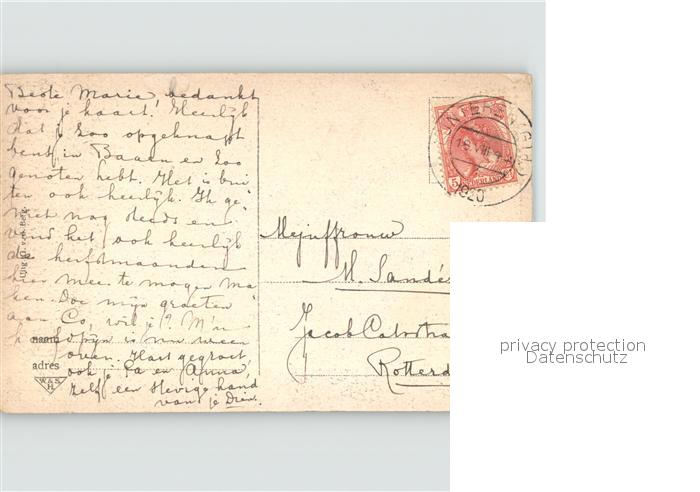 Beste Marie, bedankt
voor je kaart! Heerlijk
dat je zoo opgeknapt
bent, in Baarn en zoo
genoten hebt. Het is bui
ten ook heerlijk. Ik ge
niet nog steeds en
vind het ook heerlijk
de herfstmaanden
hier mee te mogen ma
ken. Doe mijn groeten
aan Co, wil je? M'n
hoofdpijn is nu weer
over. Hart. gegroet
ook je Pa en Anna,
zelf een stevige hand
van je Dien.
naam
adres
Uitg.
W.&S.
H.
5
NEDERLAND
1920
Mejuffrouw
M. Sandé
Jacob Catsstra
Rotterd
privacy protection
Datenschutz